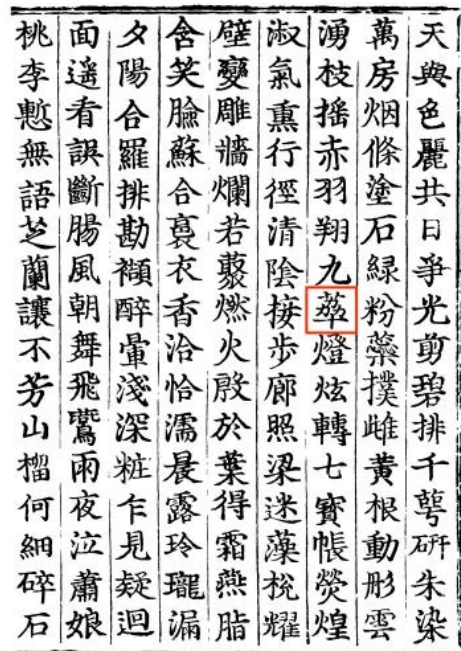 天與色麗共日爭光剪碧排千萼研朱染
萬房烟條塗石緑粉蘂撲雌黃根動彤雲
湧枝揺赤羽翔九蕐燈炫轉七寳帳熒煌
淑氣熏行徑清陰接步廊照梁迷藻梲耀
壁變雕牆爛若藂燃火殷於葉得霜燕脂
含笑臉蘇合裛衣香洽恰濡晨露玲瓏漏
夕陽合羅排勘襭醉暈淺深粧乍見疑迴
面遥看誤斷腸風朝舞飛鷰雨夜泣蕭娘
桃李慙無語芝蘭讓不芳山榴何細碎石